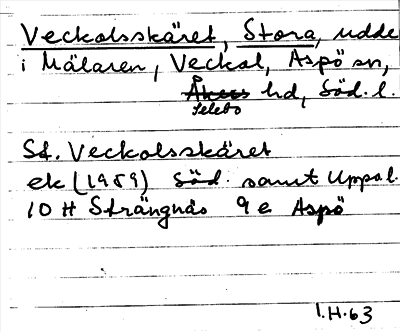 Veckolsskäret, Stora, udde
i Mälaren, Veckol, Aspö sn,
Åkers hd, Söd. l.
Selebo
St. Veckolsskäret
ek (1959) Söd. samt Uppl.
10 H Strängnäs 9 e Aspö
I.H.63